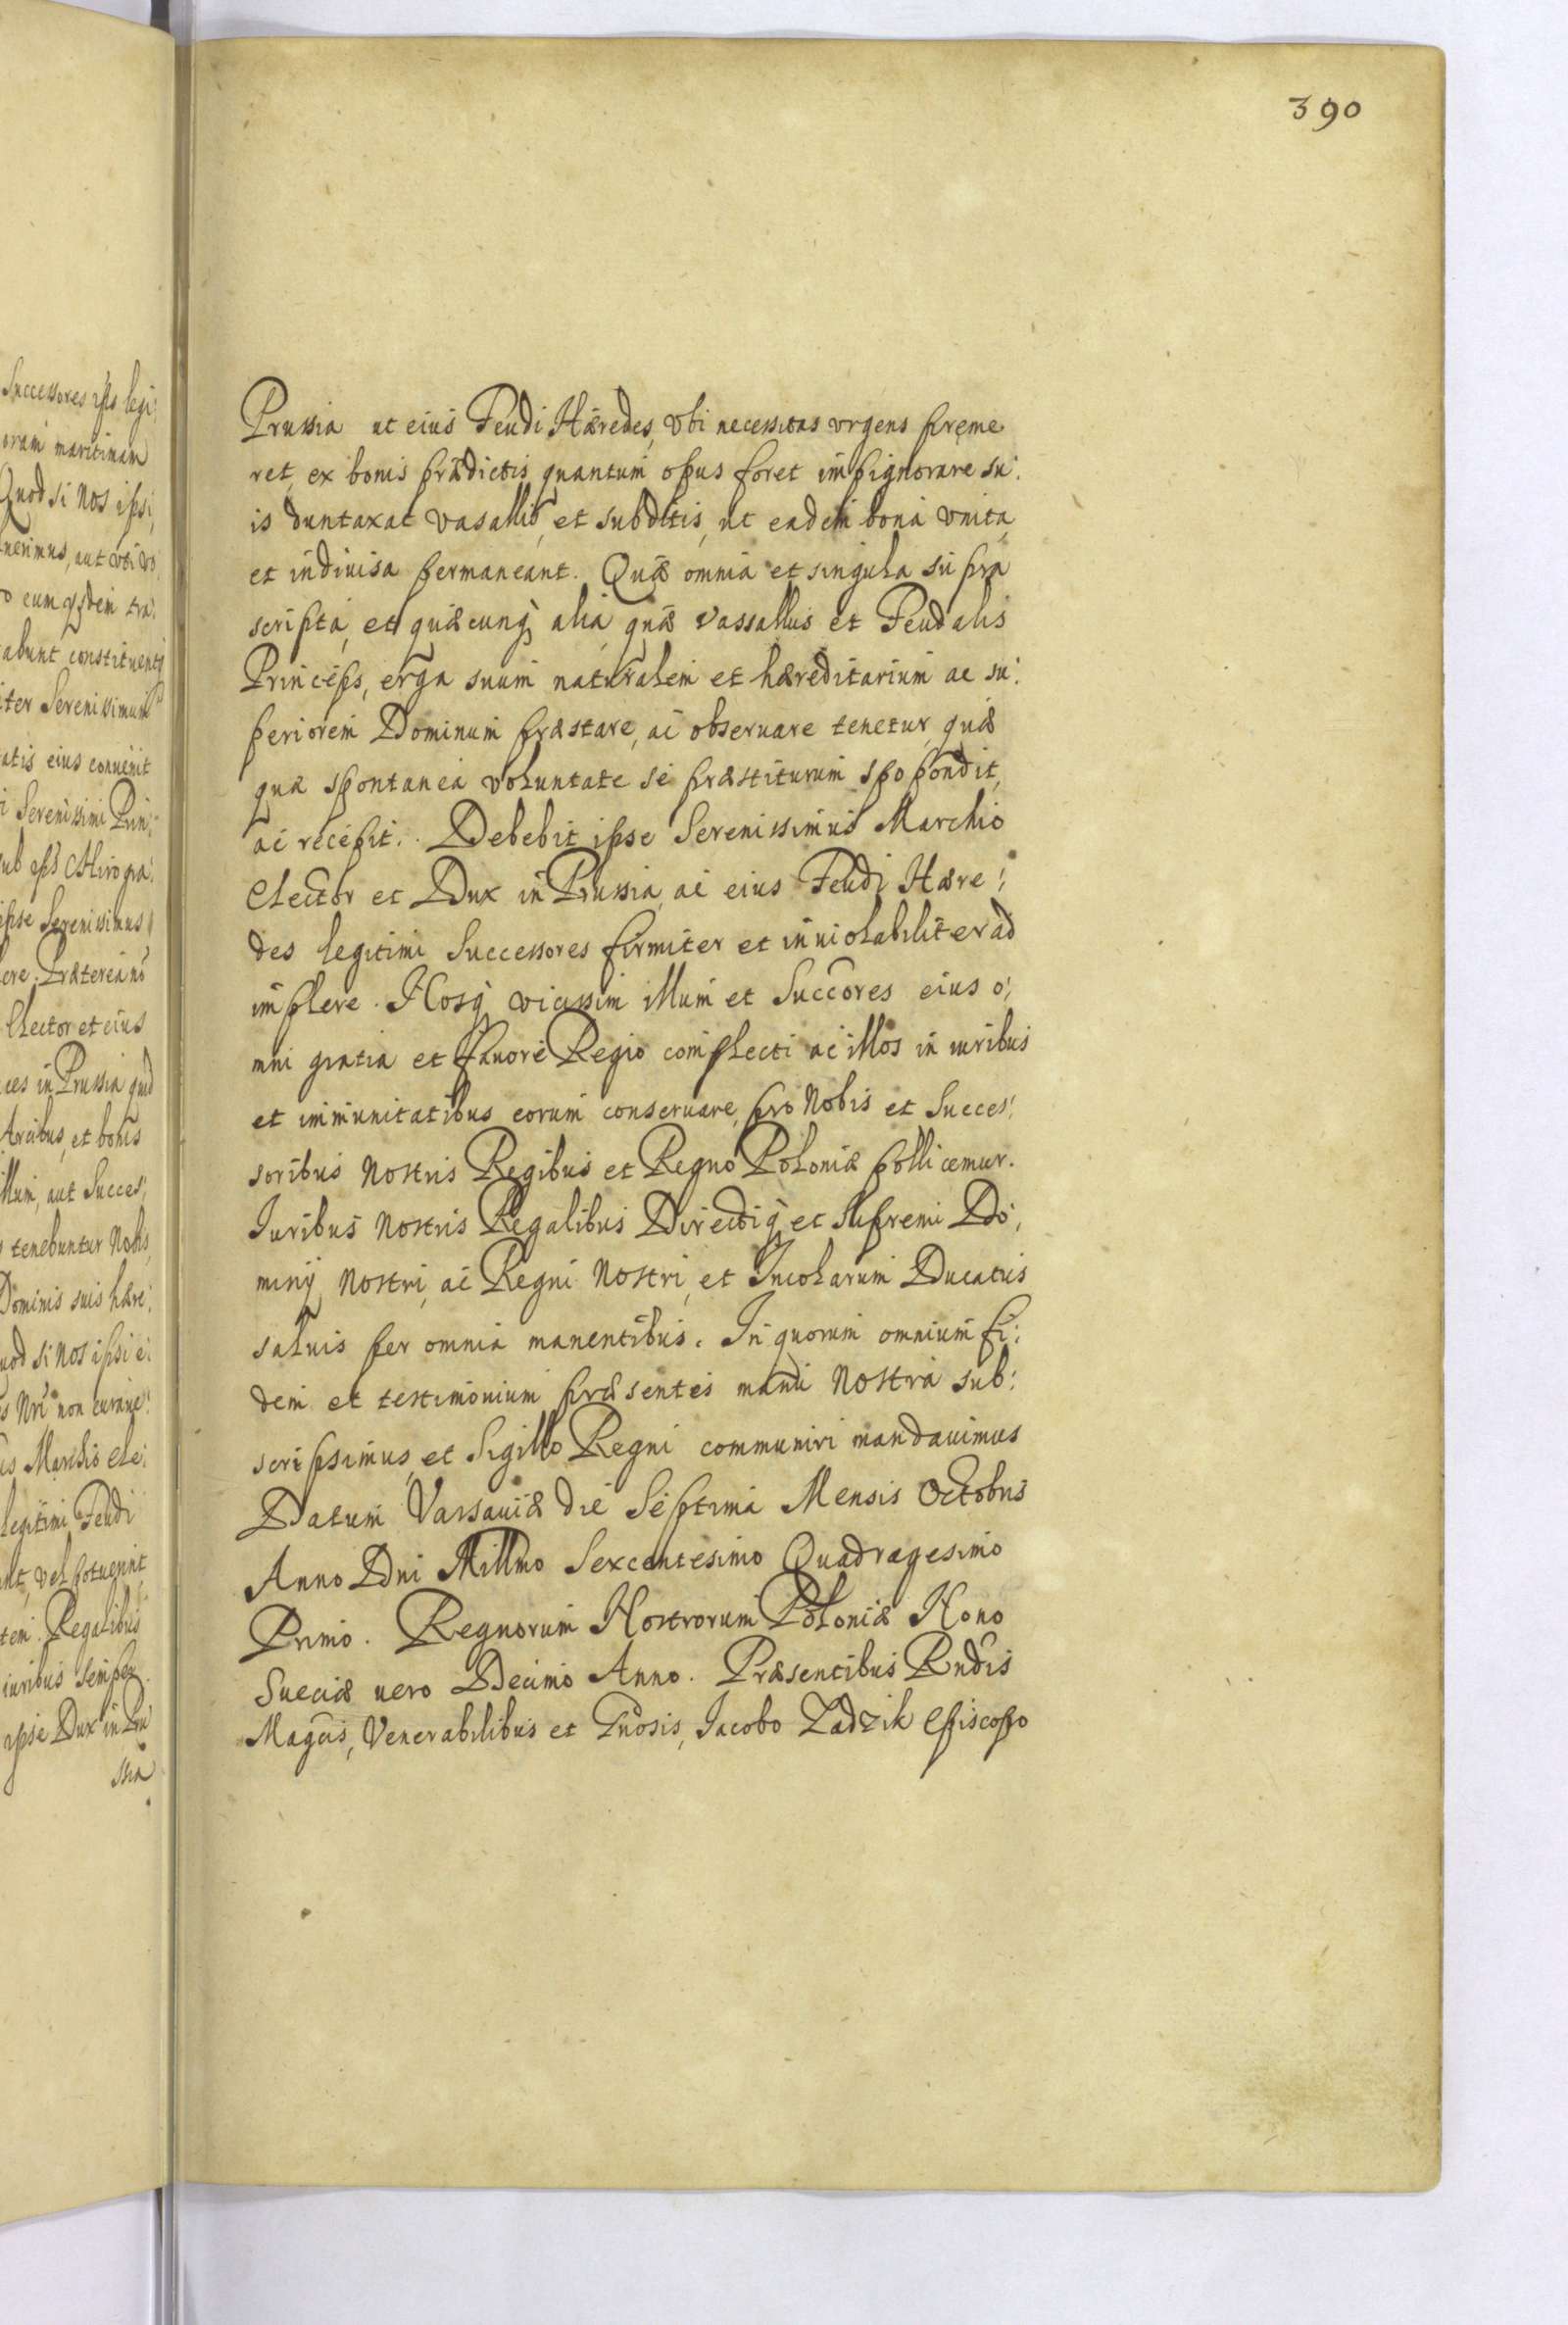 390
Successores ipīs legi:
oram maritimam
Quod si Nos ipsi,
abunt constituenti
iter Serenissimum
atis eius conuenit
i Serenissimi Prin:
ipse Serenissimus
ere. Præterea
Elector et eius
ces in Prussia
Arcibus, et bonis
illum, aut Succes:
tenebuntur Nobis,
Dominis suis hære:
uod si nos ipsi e:
s Nrī non curaue:
us Marchio Ele:
legitimi Feudi
unt, vel potuerint
tem. Regalibus
iuribus semper
ipse Dux in Pru
ssia
Prussia ut eius Feudi Hæredes, vbi necessitas vrgens preme
ret, ex bonis prædictis quantum opus foret impignorare su:
is duntaxat vasallis, et subditis, ut eadem bona vnita,
et indiuisa permaneant. Quæ omnia et singula supra
scripta, et quæcunq; alia quæ vassallus et Feudalis
Princeps, erga suum naturalem et hæreditarium ac su:
periorem Dominum præstare, ac obseruare tenetur quæ
quæ spontanea voluntate se præstiturum spopondit,
ac recepit. Debebit ipse Serenissimus Marchio
Elector et Dux in Prussia, ac eius Feudi Hære:
des legitimi Successores firmiter et inuiolabiliter ad
implere. Nosq; vicissim illum et Succores eius o:
mni gratia et fauore Regio complecti ac illos in iuribus
et immunitatibus eorum conseruare, pro Nobis et Succes:
soribus Nostris Regibus et Regno Poloniæ pollicemur.
Iuribus Nostris Regalibus Directiq; et Supremi Do:
minij Nostri, ac Regni Nostri, et Incolarum Ducatus
saluis per omnia manentibus. In quorum omnium fi:
dem et testimonium præsentes manu Nostra sub:
scripsimus, et Sigillo Regni communiri mandauimus
Datum Varsauiæ die Septima Mensis Octobris
Anno Dni Millmo Sexcentesimo Quadragesimo
Primo. Regnorum Nostrorum Poloniæ Nono
Sueciæ uero Decimo Anno. Præsentibus Rndis
Magcis, Venerabilibus et Gnosis, Iacobo Zadzik Episcopo